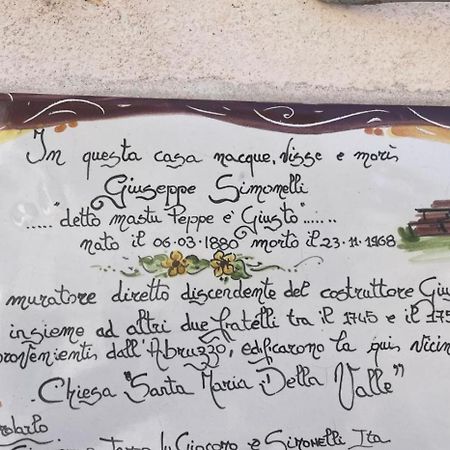 In questa casa nacque, visse e morì
Giuseppe Simonelli
....."detto mastu Peppe e' Giusto"......
nato il 06.03.1880 mortò il 23.11.1968
muratore diretto discendente del costruttore Giu
insieme ad altri due fratelli tra il 1745 e il 175
provenienti dall'Abruzzo, edificarono la qui vicin
Chiesa "Santa Maria Della Valle"
Giacomo e Simonelli Ita